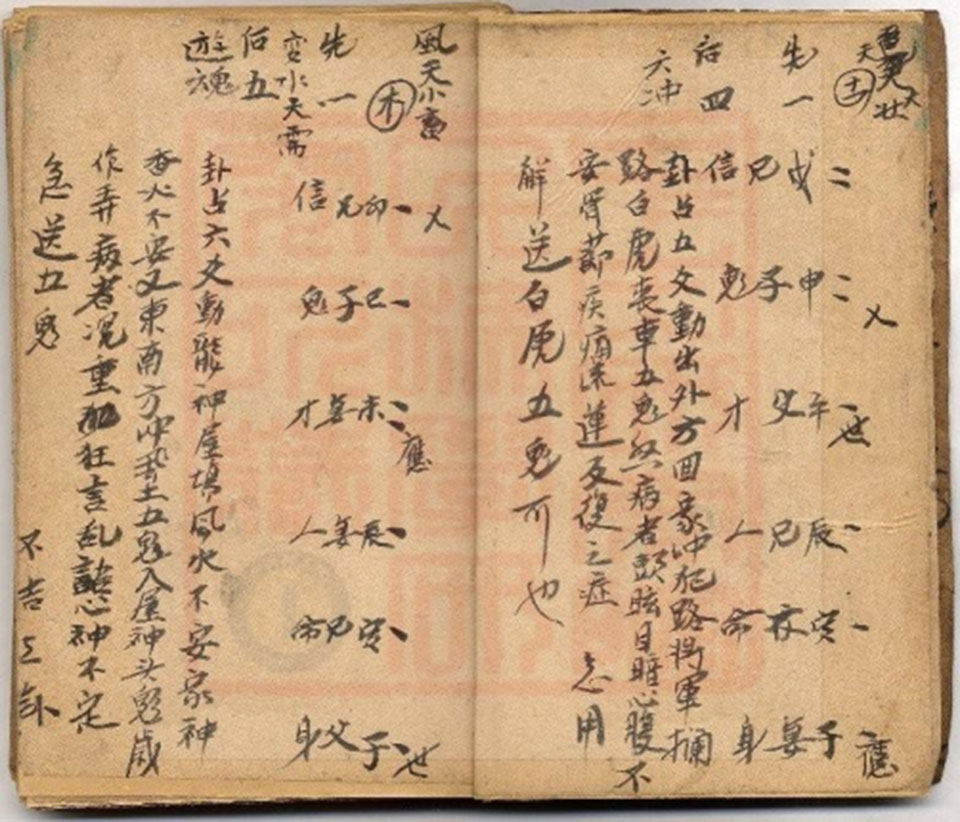 先一
后四
六冲
二戌兄信
二申子鬼
乂
午父才
世
辰兄人
寅 命
子妻身
應
卦占五爻動出外方回家冲犯路将軍攔
路白虎喪車五鬼 病者頭眩目暗心腹不
安骨節疾痛流蓮反復之症 急用
解送白虎五鬼可也
風天小畜
木
先一
变水天需
后五
遊魂
卯兄信
乂
巳子鬼
未妻才
應
辰妻人
寅兄命
子父身
世
卦占六爻動龍神屋場風水不安家神
香火不安又東南方冲 土五鬼入屋神头鬼歲
作弄病者况重 狂言乱語心神不定
急送五鬼
不吉之卦